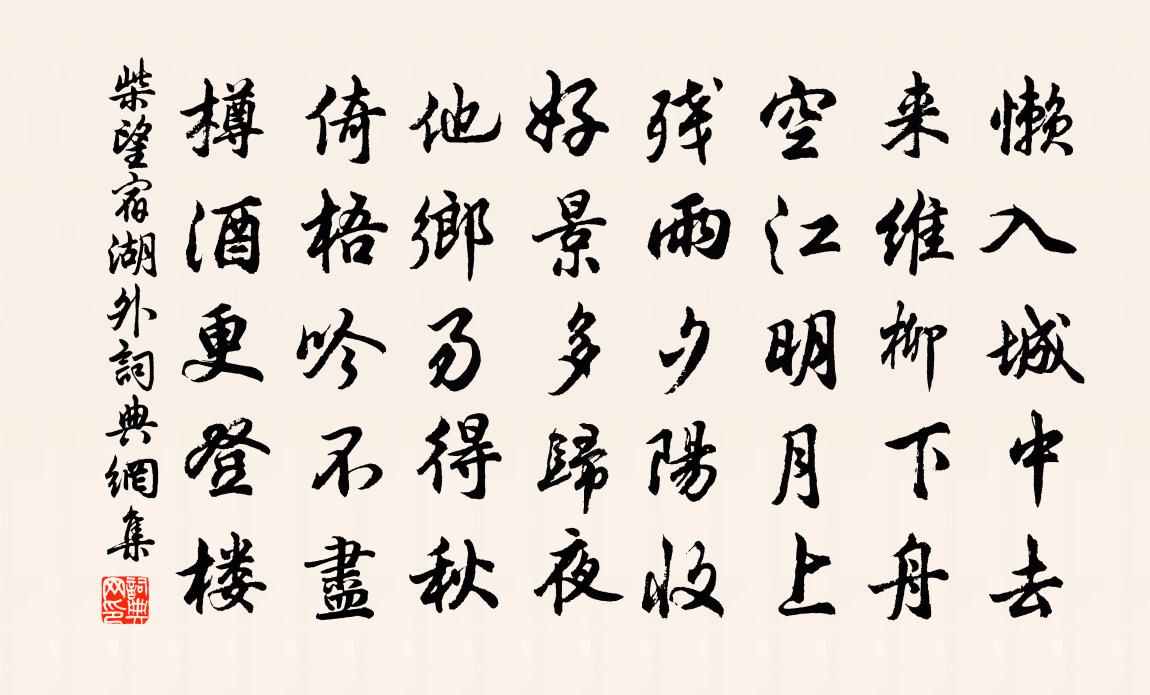 懒入城中去
来维柳下舟
空江明月上
残雨夕陽收
好景多歸夜
他鄉易得秋
倚梧吟不盡
樽酒更登楼
柴望宿湖外詞典網集
詞典网印